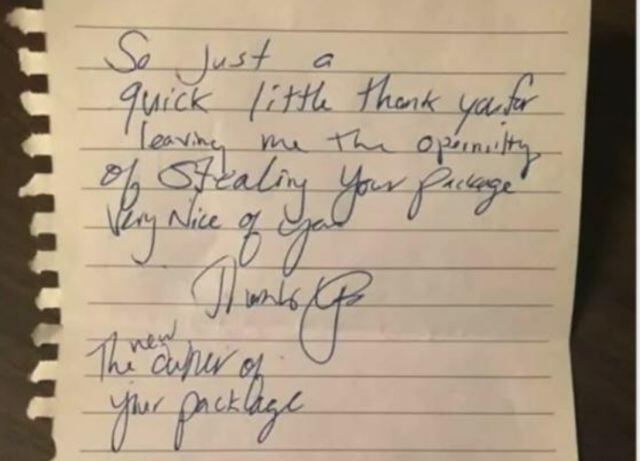 So Just a
quick little thank you for
leaving me the
of Stealing your package
Very Nice of you
The new owner of
your package